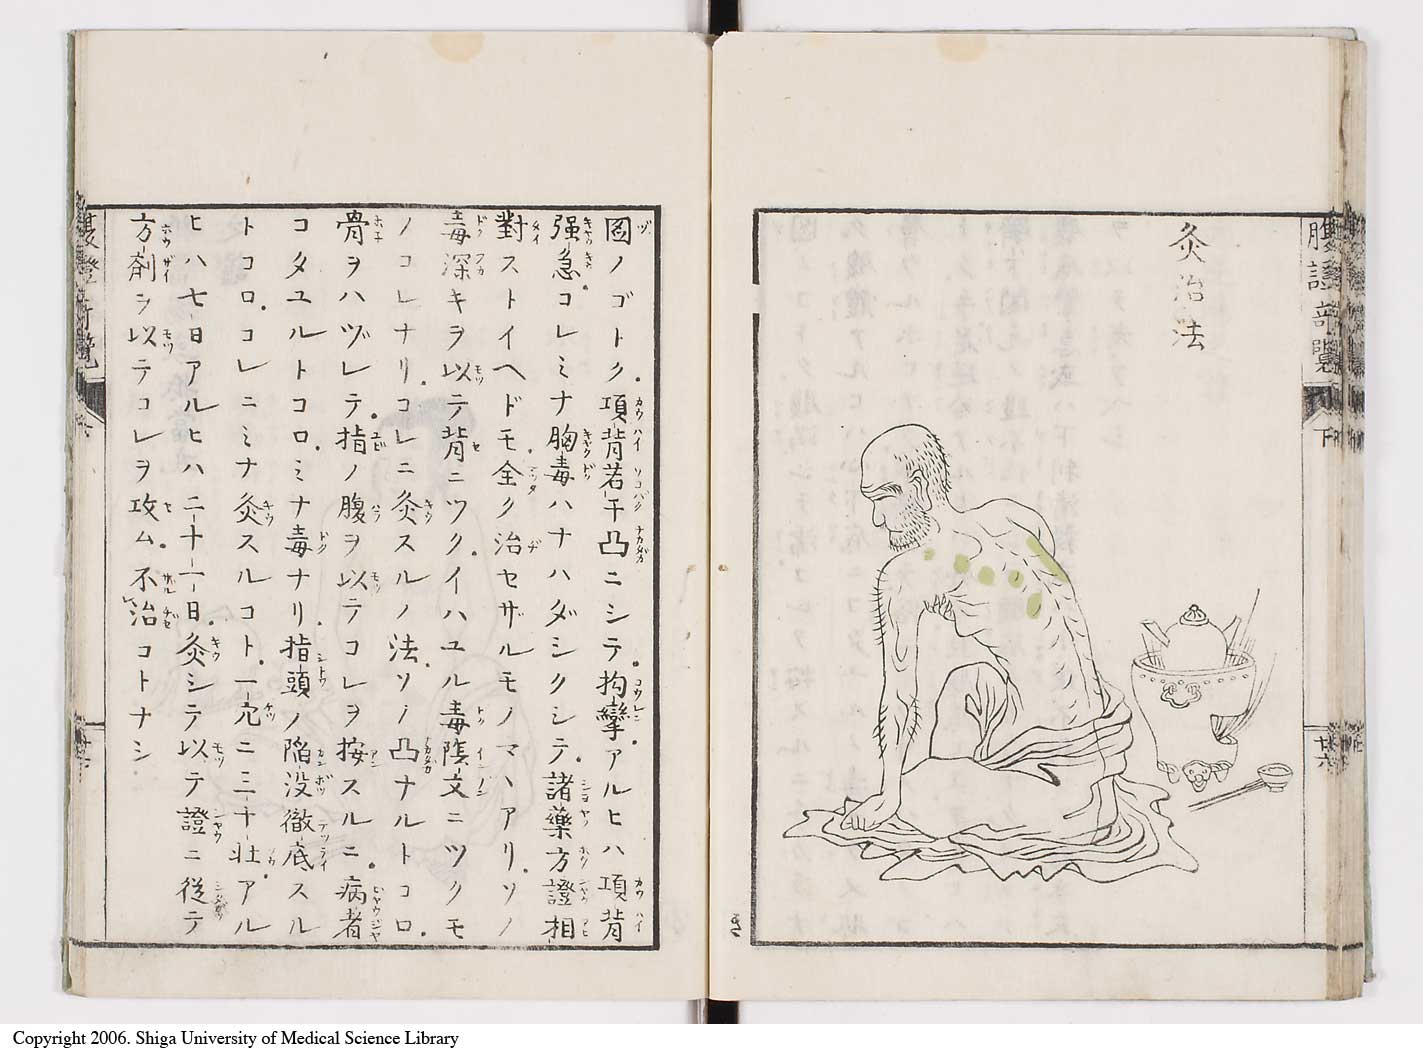 灸治法
腹證部覽
下
廿六
圖ノゴトク項背若干凸ニシテ拘攣アルヒハ項背
强急コレミナ胸毒ハナハダシクシテ諸藥方證相
對ストイヘドモ全ク治セザルモノマヽアリソノ
毒深キヲ以テ背ニツクイハユル毒陰文ニツクモ
ノコレナリコレニ灸スルノ法ソノ凸ナルトコロ
骨ヲハヅレテ指ノ腹ヲ以テコレヲ按スルニ病者
コタユルトコロミナ毒ナリ指頭ノ陥没徹底スル
トコロコレニミナ灸スルコト一穴ニ三十壮アル
ヒハ七日アルヒハ二十一日灸シテ以テ證ニ從テ
方劑ヲ以テコレヲ攻ム不治コトナシ
Copyright 2006. Shiga University of Medical Science Library